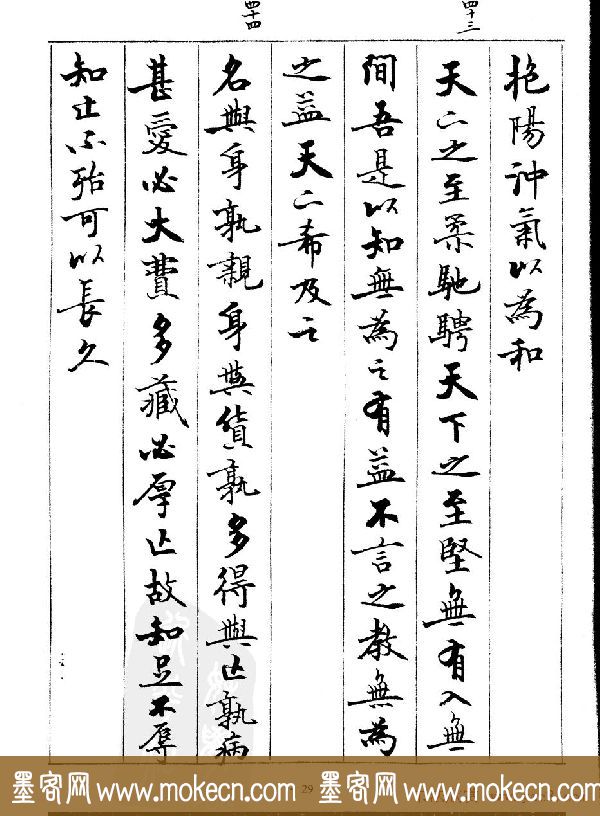 四十三
四十四
抱陽沖氣以為和
天下之至柔馳騁天下之至堅無有入無
間吾是以知無為之有益不言之教無為
之益天下希及之
名與身孰親身與貨孰多得與亡孰病
甚愛必大費多藏必厚亡故知足不辱
知止不殆可以長久
墨客网 www.mokecn.com 29 墨客网 www.mokecn.com